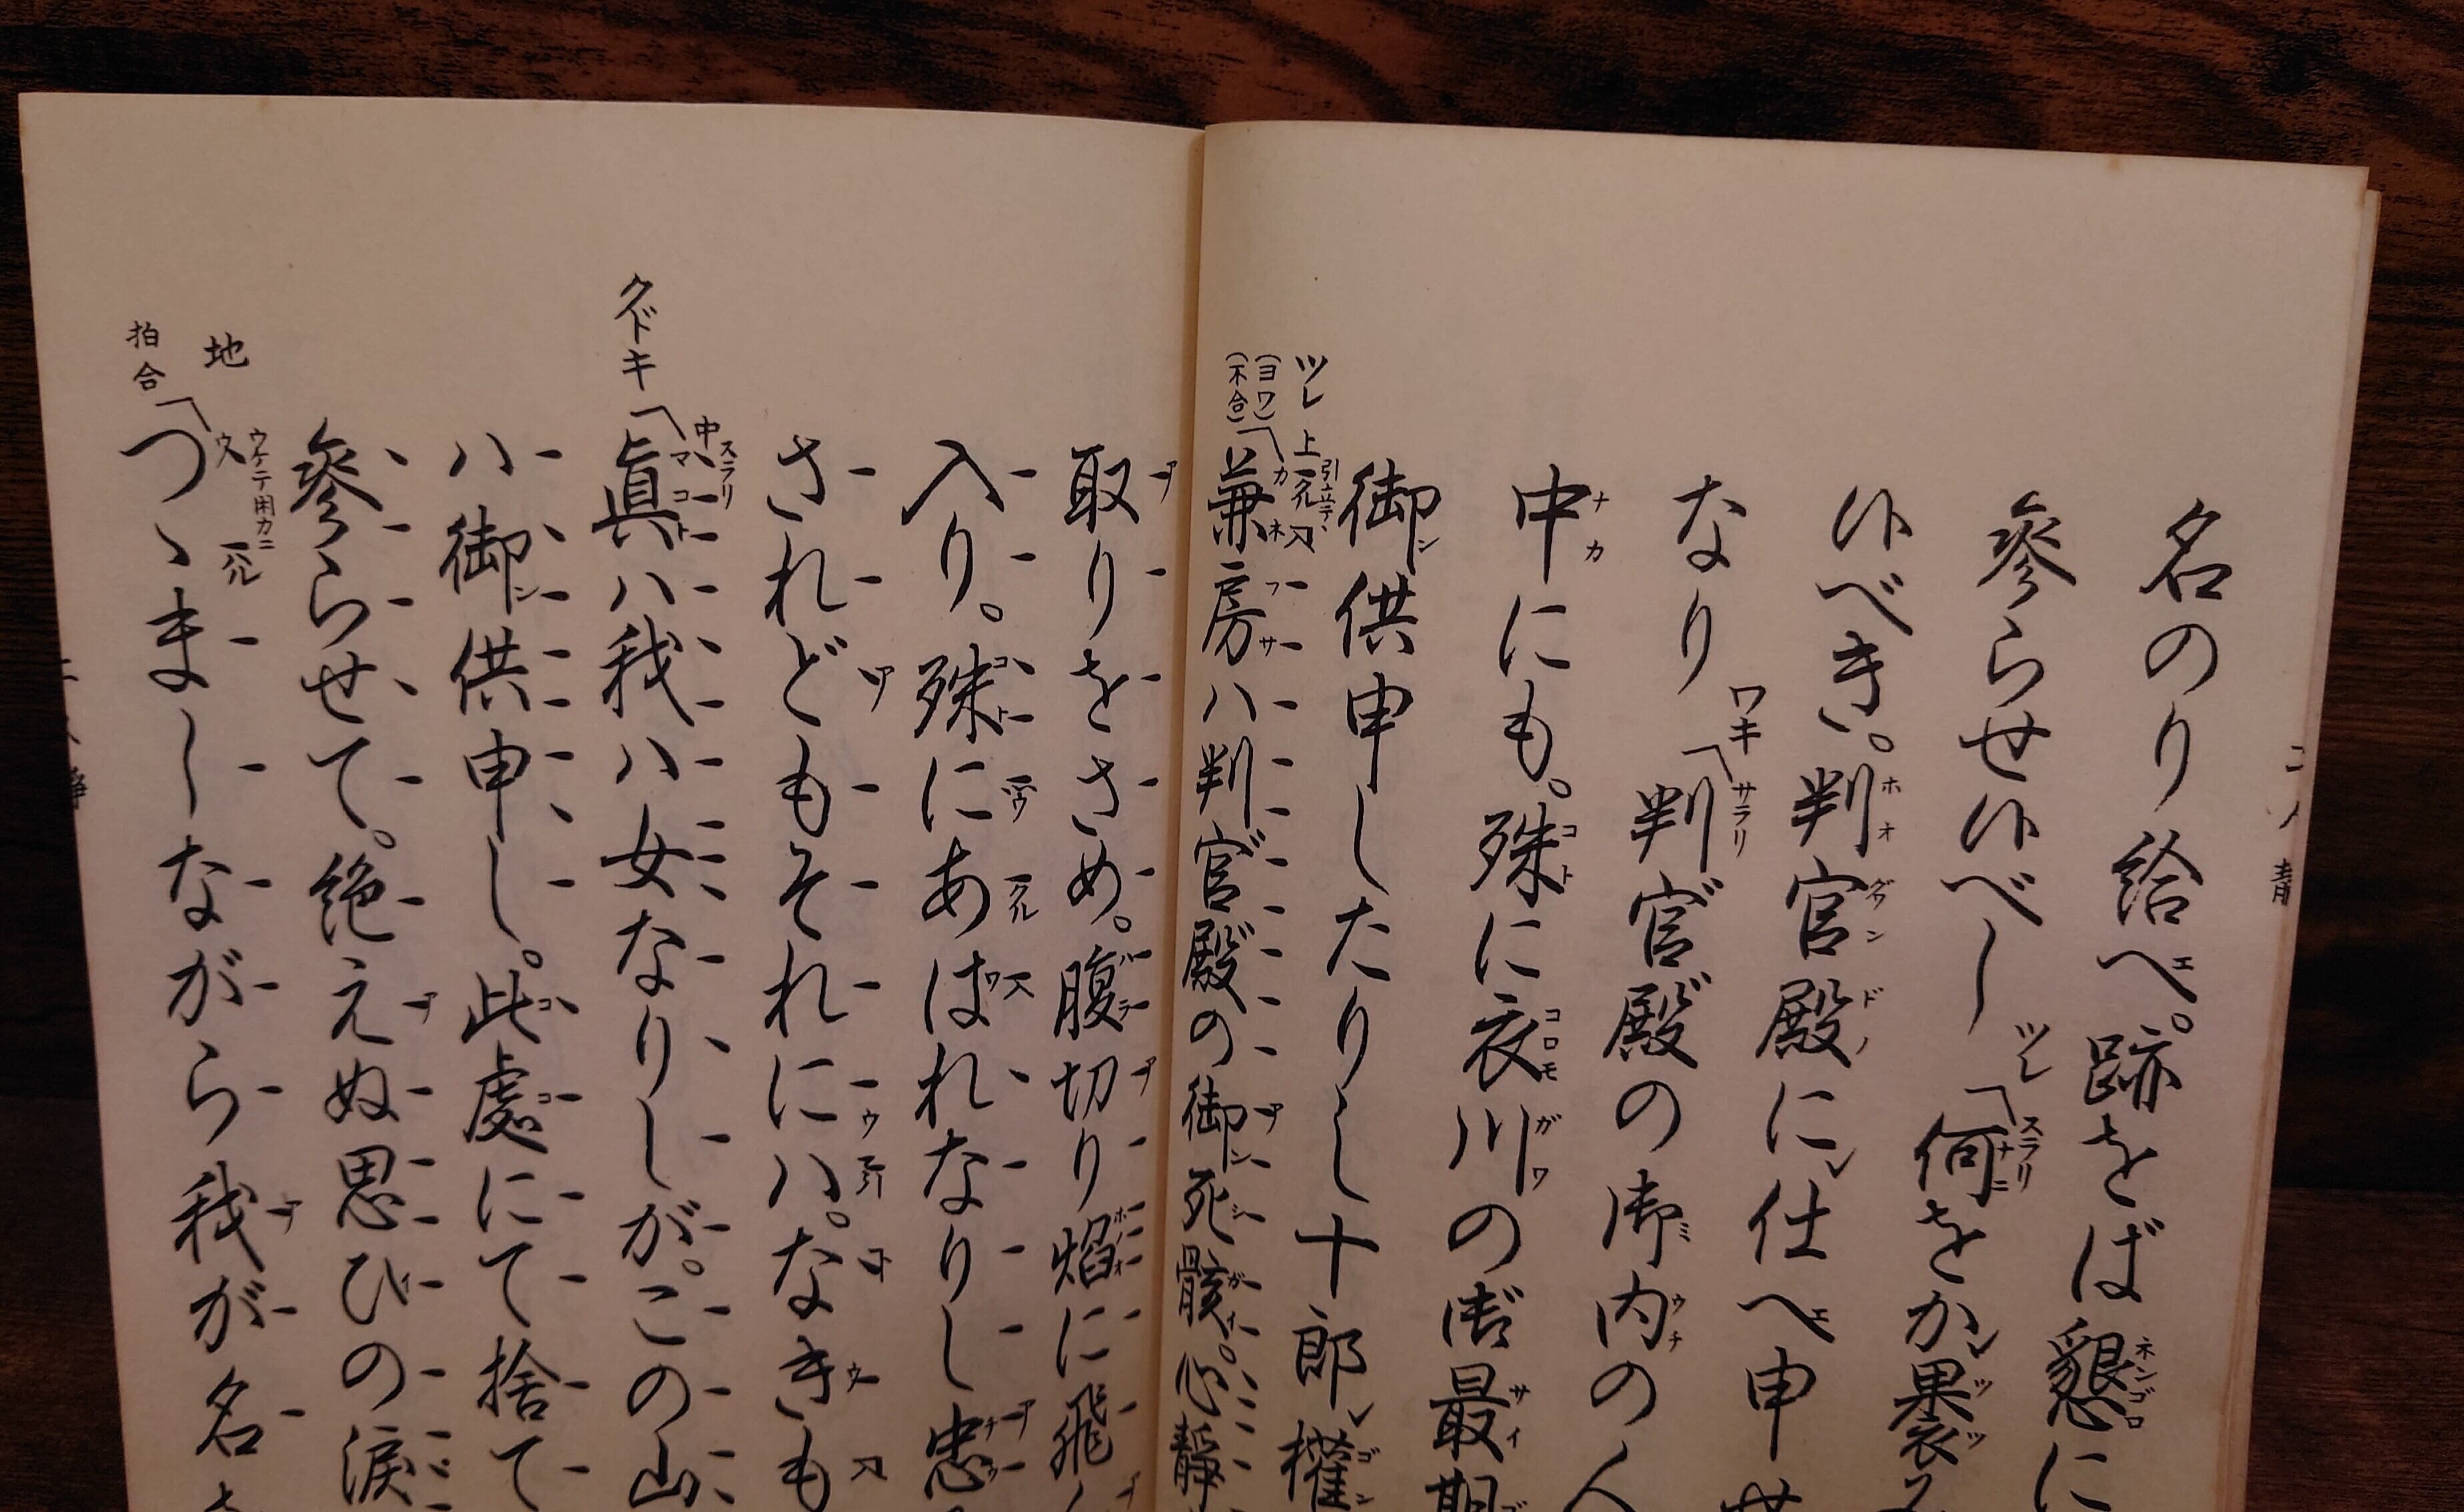 名のり給へ。跡をば懇に
参らせ候べし ツレ「何をか裹
候べき。判官殿に仕へ申
なり ワキ「判官殿の御内の人
中にも。殊に衣川の御最期
御供申したりし十郎権
ツレ「兼房ハ判官殿の御死骸。心静
取りをさめ。腹切り焰に飛
入り。殊にあはれなりし忠
されどもそれにハ。なきも
クドキ「眞ハ我ハ女なりしが。この山
ハ御供申し。此處にて捨て
参らせて。絶えぬ思ひの涙
地「つゝましながら我が名
拍合